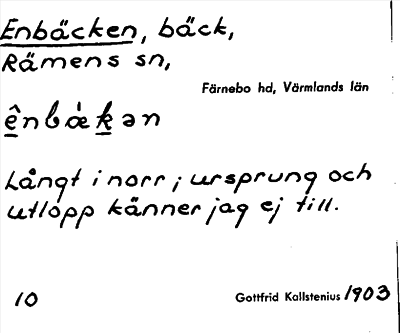 Enbäcken, bäck,
Rämens sn,
Färnebo hd, Värmlands län
ê̱nbàḵən
Långt i norr; ursprung och
utlopp känner jag ej till.
10 Gottfrid Kallstenius 1903